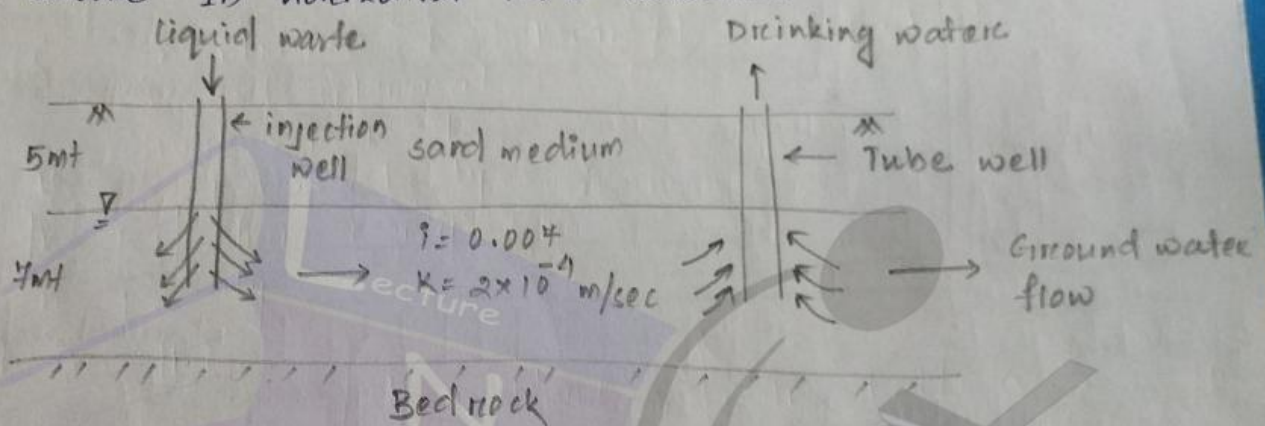 liquid waste
Drcinking waterc
5mt
injection
well
sand medium
Tube well
i = 0.004
K = 2×10⁻⁴ m/sec
7mt
Giround water
flow
ecture
N
Bed rock